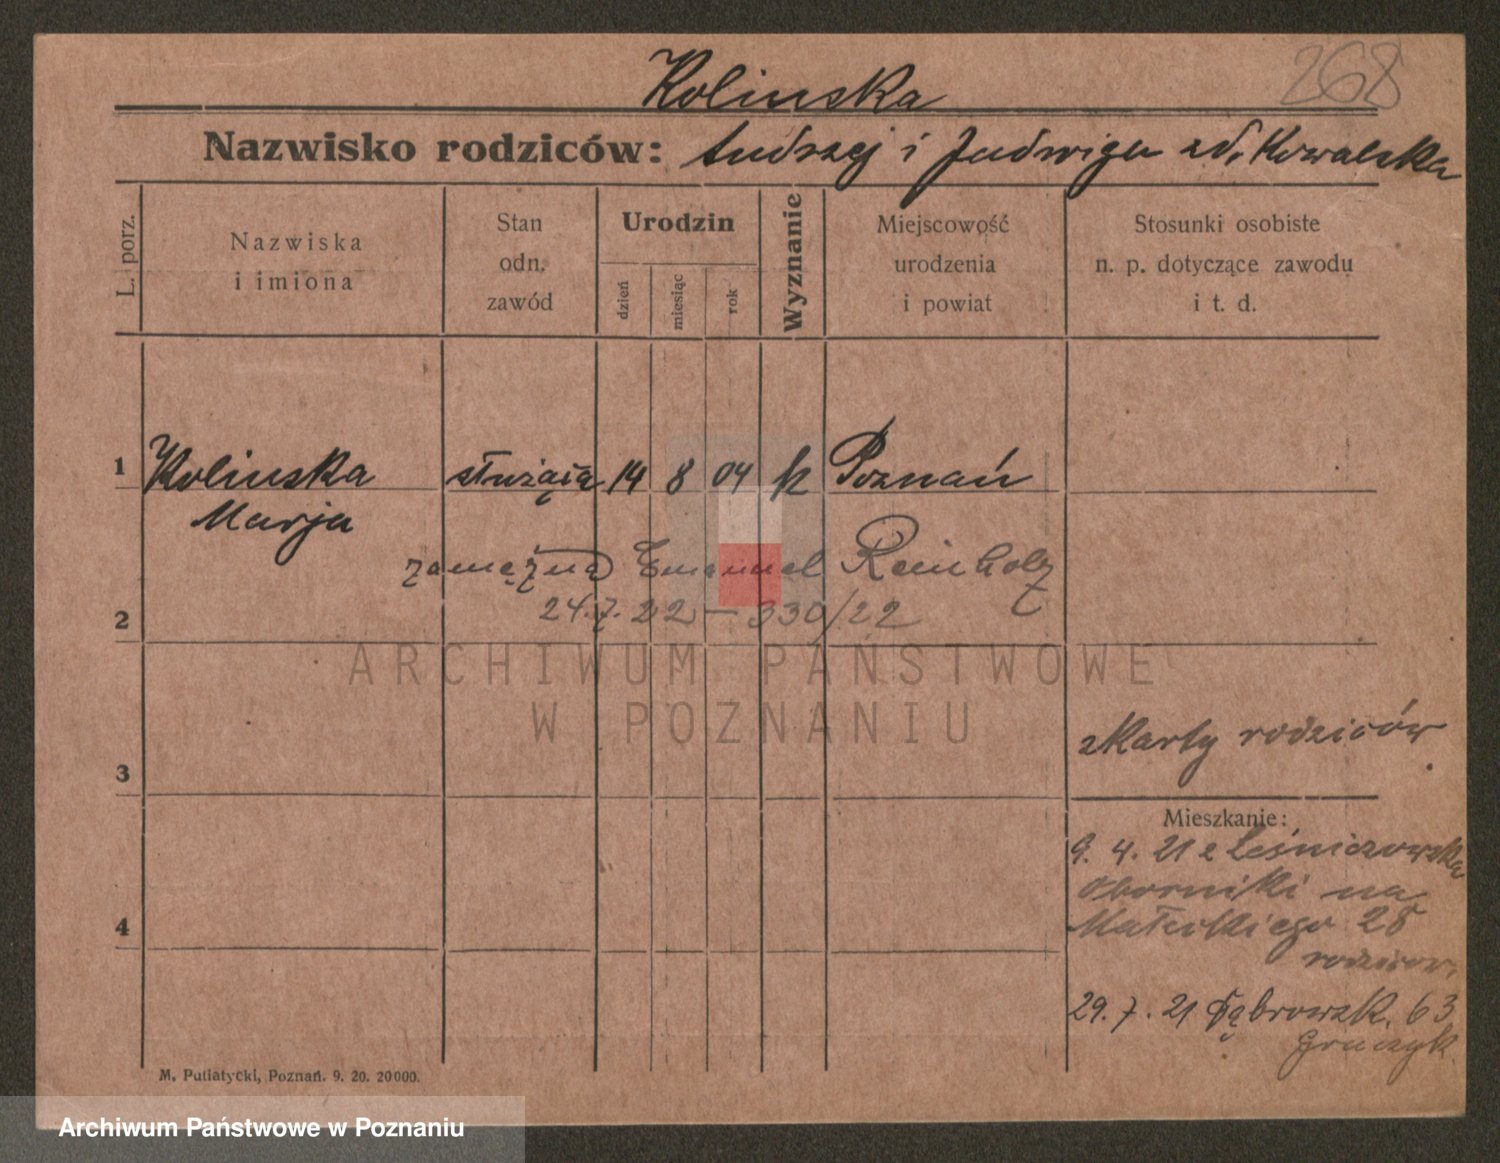 268
Kolinska
Nazwisko rodziców: Andrzej i Jadwiga zd. Kowalska
L. porz.
Nazwiska
i imiona
Stan
odn.
zawód
Urodzin
dzień
miesiąc
rok
Wyznanie
Miejscowość
urodzenia
i powiat
Stosunki osobiste
n. p. dotyczące zawodu
i t. d.
1 Kolinska służąca 14 8 04 k Poznań
Marja
zamężna Emanuel Reinholz
24.7.22 — 330/22
2
ARCHIWUM PAŃSTWOWE
W POZNANIU
z karty rodziców
3
Mieszkanie:
9. 4. 21 z Leśniczowska
Oborniki na
Małeckiego 28
4
rodziców.
29. 7. 21 Dąbrowsk. 63
M. Putiatycki, Poznań. 9. 20. 20000.
Archiwum Państwowe w Poznaniu